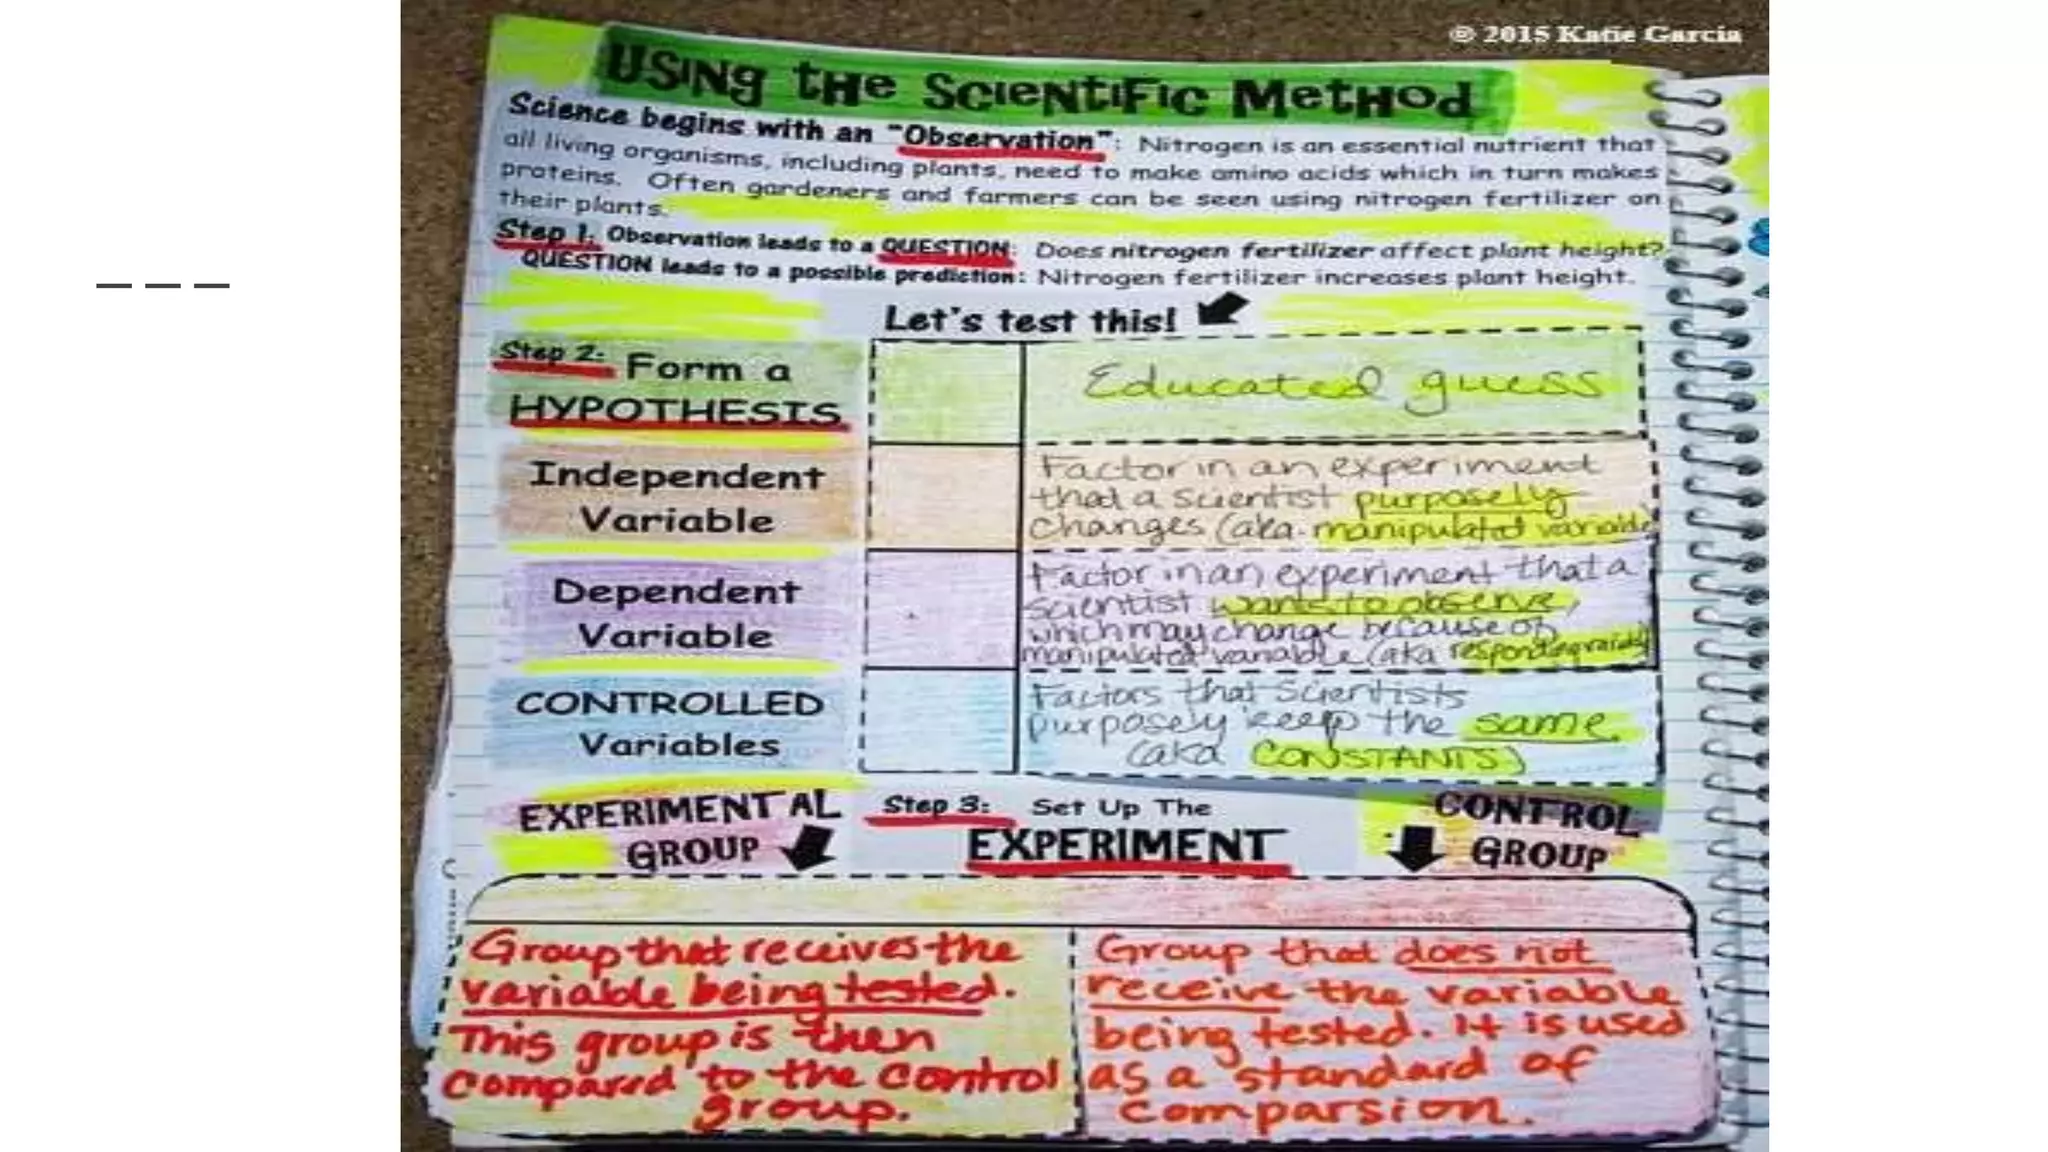 © 2015 Katie Garcia
USING tHe ScIeNtIFIc MetHod
Science begins with an "Observation": Nitrogen is an essential nutrient that
all living organisms, including plants, need to make amino acids which in turn makes
proteins. Often gardeners and farmers can be seen using nitrogen fertilizer on
their plants.
Step 1: Observation leads to a QUESTION: Does nitrogen fertilizer affect plant height?
QUESTION leads to a possible prediction: Nitrogen fertilizer increases plant height.
Let's test this!
Step 2: Form a
HYPOTHESIS
Educated guess
Independent
Variable
Factor in an experiment
that a scientist purposely
changes (aka. manipulated variable
Dependent
Variable
Factor in an experiment that a
scientist wants to observe,
which may change because of
manipulated variable (aka responding variable
CONTROLLED
Variables
Factors that scientists
purposely keep the same
(aka CONSTANTS)
EXPERIMENTAL
GROUP
Step 3: Set Up The
EXPERIMENT
CONTROL
GROUP
Group that receives the
variable being tested.
This group is then
compared to the control
group.
Group that does not
receive the variable
being tested. It is used
as a standard of
comparsion.